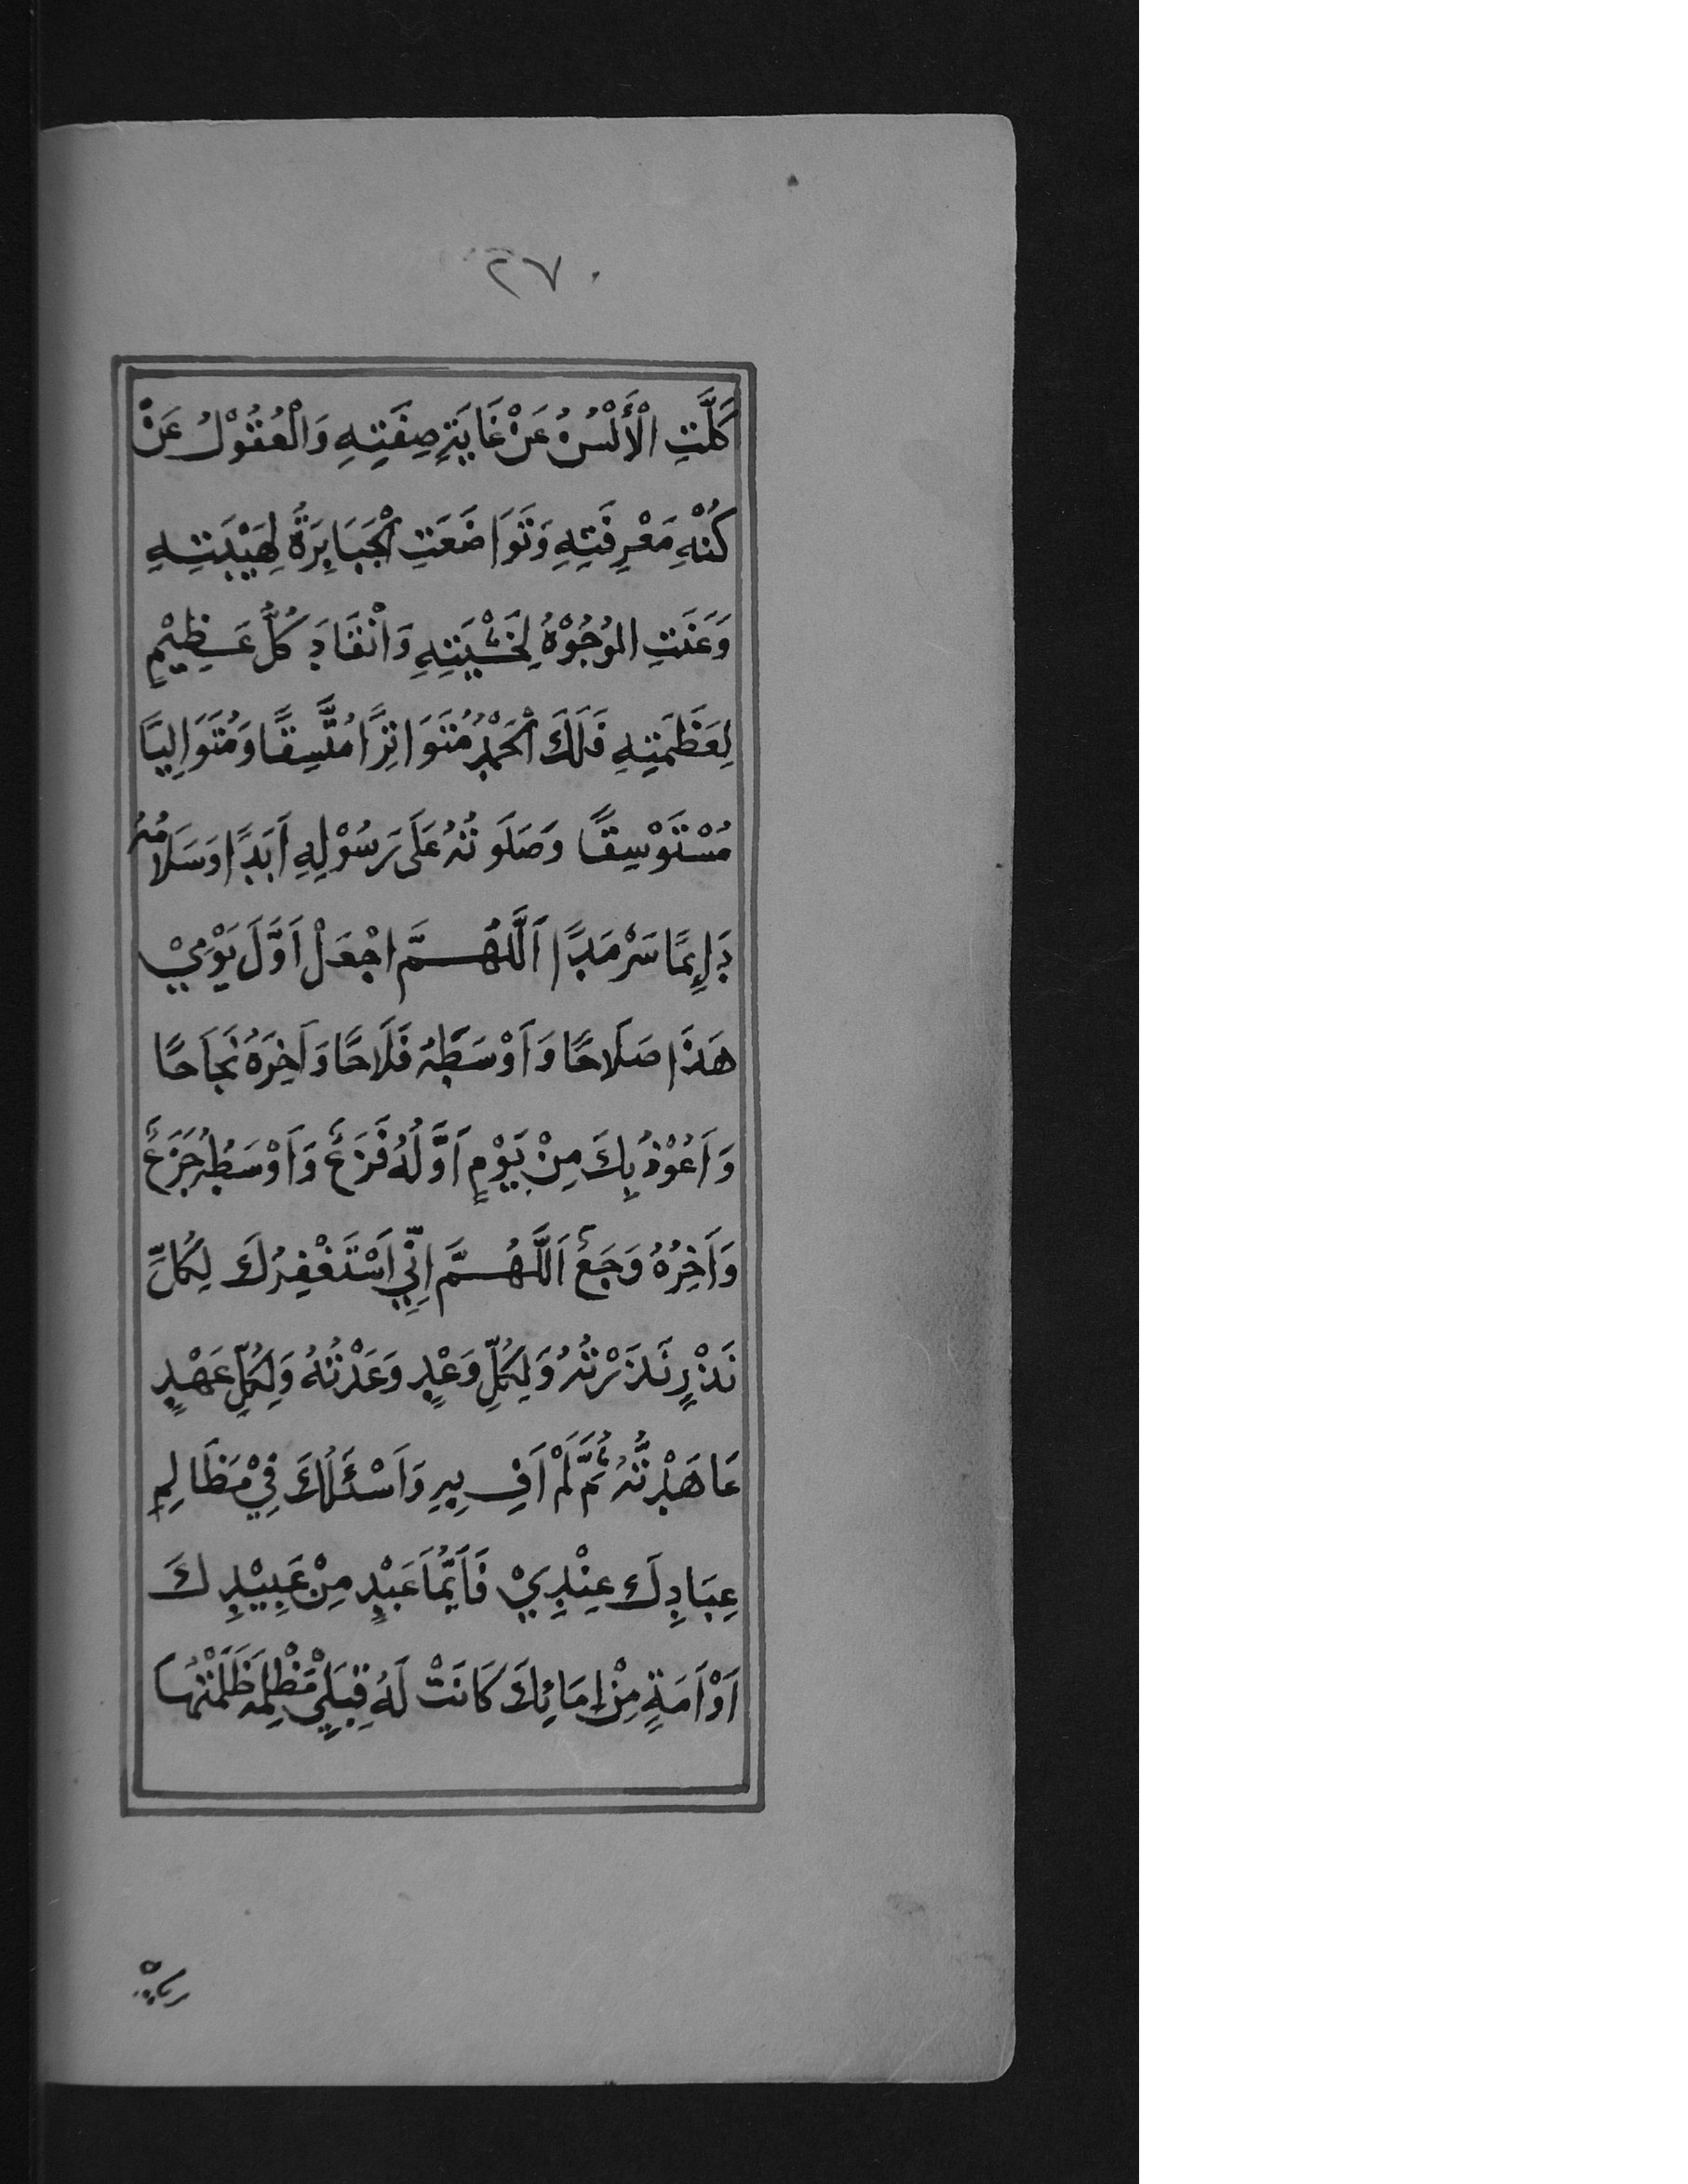 ٢٧٠
كَلَّتِ الْأَلْسُنُ عَنْ غَايَةِ صِفَتِهِ وَالْعُقُوْلُ عَنْ
كُنْهِ مَعْرِفَتِهِ وَتَوَاضَعَتِ الْجَبَابِرَةُ لِهَيْبَتِهِ
وَعَنَتِ الْوُجُوْهُ لِخَشْيَتِهِ وَانْقَادَ كُلُّ عَظِيْمٍ
لِعَظَمَتِهِ فَلَكَ الْحَمْدُ مُتَوَاتِرًا مُتَّسِقًا وَمُتَوَالِيًا
مُسْتَوْسِقًا وَصَلَوتُهُ عَلَى رَسُوْلِهِ اَبَدًا وَسَلَامُهُ
دَائِمًا سَرْمَدًا اَللّٰهُمَّ اجْعَلْ اَوَّلَ يَوْمِيْ
هَذَا صَلَاحًا وَاَوْسَطَهُ فَلَاحًا وَاَخِرَهُ نَجَاحًا
وَاَعُوْذُ بِكَ مِنْ يَوْمٍ اَوَّلُهُ فَزَعٌ وَاَوْسَطُهُ جَزَعٌ
وَاَخِرُهُ وَجَعٌ اَللّٰهُمَّ اِنِّيْ اَسْتَغْفِرُكَ لِكُلِّ
نَذْرٍ نَذَرْتُهُ وَلِكُلِّ وَعْدٍ وَعَدْتُهُ وَلِكُلِّ عَهْدٍ
عَاهَدْتُهُ ثُمَّ لَمْ اَفِ بِهِ وَاَسْئَلُكَ فِيْ مَظَالِمِ
عِبَادِكَ عِنْدِيْ فَاَيُّمَا عَبْدٍ مِنْ عَبِيْدِكَ
اَوْ اَمَةٍ مِنْ اِمَائِكَ كَانَتْ لَهُ قِبَلِيْ مَظْلِمَةٌ ظَلَمْتُهَا